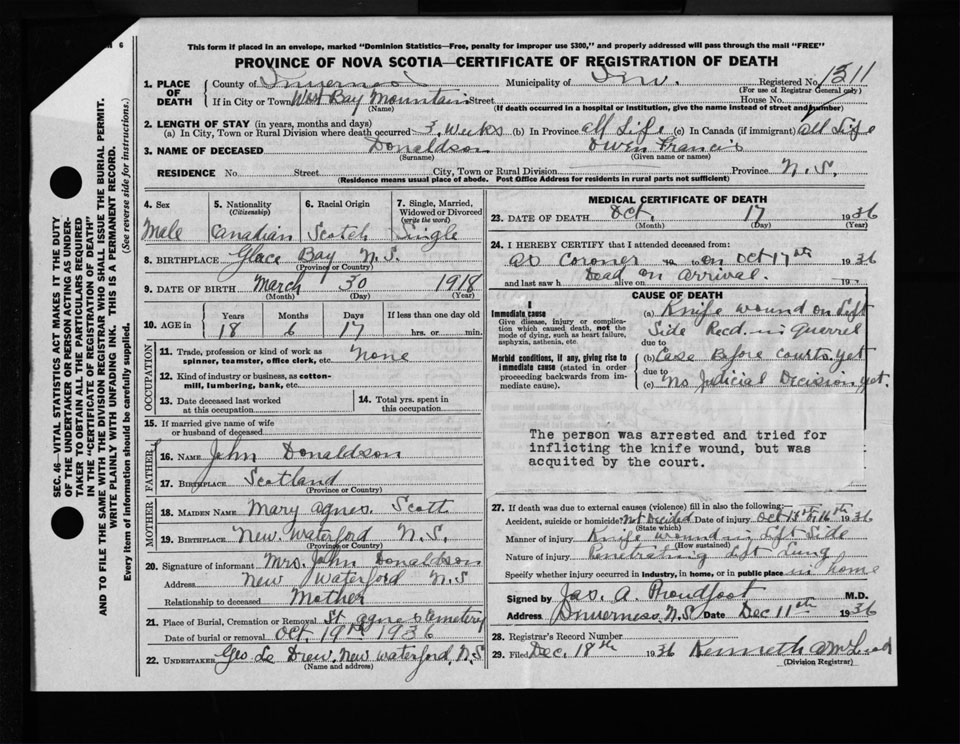 M 6
This form if placed in an envelope, marked "Dominion Statistics—Free, penalty for improper use $300," and properly addressed will pass through the mail "FREE"
PROVINCE OF NOVA SCOTIA—CERTIFICATE OF REGISTRATION OF DEATH
SEC. 46—VITAL STATISTICS ACT MAKES IT THE DUTY
OF THE UNDERTAKER OR PERSON ACTING AS UNDER-
TAKER TO OBTAIN ALL THE PARTICULARS REQUIRED
IN THE "CERTIFICATE OF REGISTRATION OF DEATH"
AND TO FILE THE SAME WITH THE DIVISION REGISTRAR WHO SHALL ISSUE THE BURIAL PERMIT.
WRITE PLAINLY WITH UNFADING INK. THIS IS A PERMANENT RECORD.
Every item of information should be carefully supplied. (See reverse side for instructions.)
1. PLACE OF DEATH County of Inverness Municipality of Inv. Registered No. 1311
(For use of Registrar General only)
If in City or Town West Bay Mountain Street House No.
(Name) (If death occurred in a hospital or institution, give the name instead of street and number)
2. LENGTH OF STAY (in years, months and days)
(a) In City, Town or Rural Division where death occurred 3 Weeks (b) In Province all Life (c) In Canada (if immigrant) all Life
3. NAME OF DECEASED Donaldson Owen Francis
(Surname) (Given name or names)
RESIDENCE No. Street City, Town or Rural Division Province N.S.
(Residence means usual place of abode. Post Office Address for residents in rural parts not sufficient)
4. Sex 5. Nationality (Citizenship) 6. Racial Origin 7. Single, Married, Widowed or Divorced (write the word)
Male Canadian Scotch Single
8. BIRTHPLACE Glace Bay N.S.
(Province or Country)
9. DATE OF BIRTH March 30 1918
(Month) (Day) (Year)
10. AGE in Years Months Days If less than one day old
18 6 17 hrs. or min.
OCCUPATION
11. Trade, profession or kind of work as spinner, teamster, office clerk, etc. None
12. Kind of industry or business, as cotton-mill, lumbering, bank, etc.
13. Date deceased last worked at this occupation 14. Total yrs. spent in this occupation
15. If married give name of wife or husband of deceased
FATHER
16. NAME John Donaldson
17. BIRTHPLACE Scotland
(Province or Country)
MOTHER
18. MAIDEN NAME Mary Agnes Scott
19. BIRTHPLACE New Waterford N.S.
(Province or Country)
20. Signature of informant Mrs. John Donaldson
Address New Waterford N.S
Relationship to deceased Mother
21. Place of Burial, Cremation or Removal St Agnes Cemetery
Date of burial or removal Oct. 19th 1936
22. UNDERTAKER Geo Le Drew, New Waterford, N.S
(Name and address)
MEDICAL CERTIFICATE OF DEATH
23. DATE OF DEATH Oct. 17 1936
(Month) (Day) (Year)
24. I HEREBY CERTIFY that I attended deceased from:
as Coroner to on Oct 17th 1936
and last saw h alive on Dead on Arrival. 19
CAUSE OF DEATH
I
Immediate cause
Give disease, injury or complication which caused death, not the mode of dying, such as heart failure, asphyxia, asthenia, etc.
(a) Knife wound on Left
Side Recd. in Quarrel
due to
Morbid conditions, if any, giving rise to immediate cause (stated in order proceeding backwards from immediate cause).
(b) Case Before courts yet
due to
(c) No Judicial Decision yet.
The person was arrested and tried for
inflicting the knife wound, but was
acquited by the court.
27. If death was due to external causes (violence) fill in also the following:
Accident, suicide or homicide? Not Decided Date of injury Oct 1936
(State which)
Manner of injury Knife wound in Left Side
(How sustained)
Nature of injury Penetrating Left Lung
Specify whether injury occurred in industry, in home, or in public place in home
Signed by Jas. A. Proudfoot M.D.
Address Inverness, N.S Date Dec 11th 1936
28. Registrar's Record Number
29. Filed Dec. 18th 1936 Kenneth
(Division Registrar)